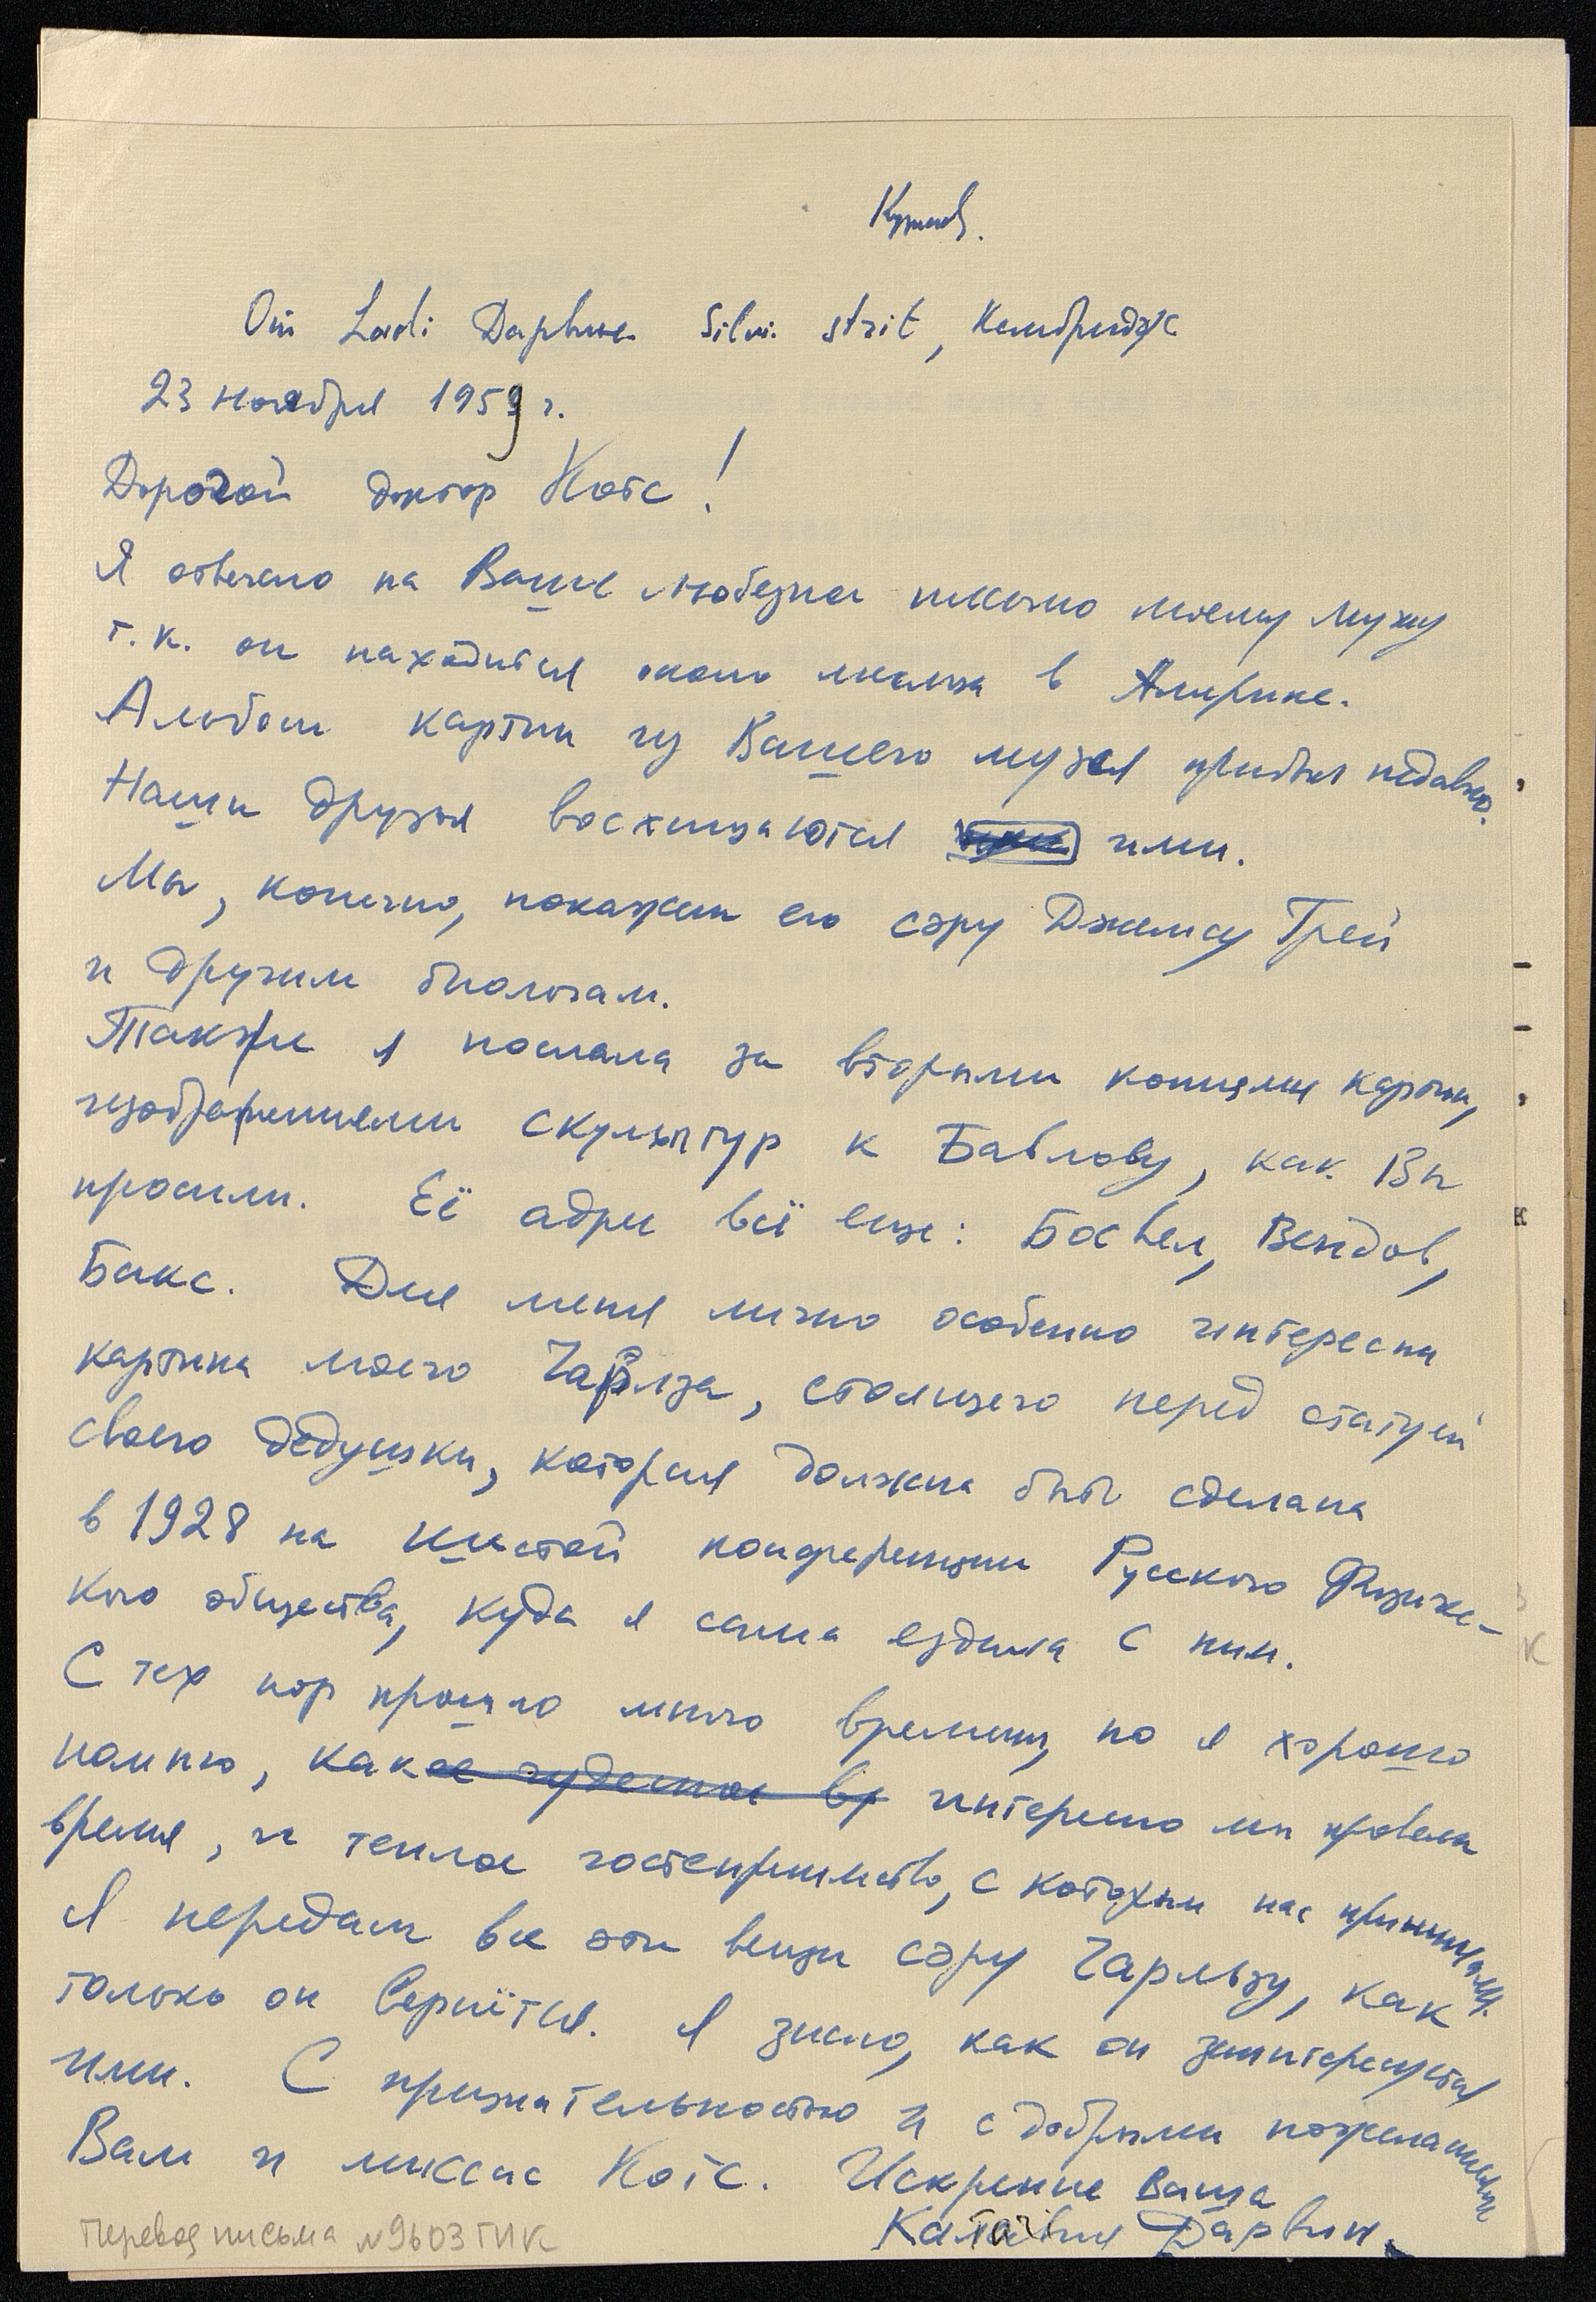 От Ladi Daphne Silvi strit, Кембридж
23 ноября 1959 г.
Дорогой доктор Котс!
Я отвечаю на Ваше любезное письмо моему мужу
т.к. он находится около месяца в Америке.
Альбом картин из Вашего музея прибыл недавно.
Наши друзья восхищаются ими.
Мы, конечно, покажем его сэру Джемсу Грей
и другим биологам.
Также я послала за вторыми копиями картин,
изображениями скульптур к Бавлову, как Вы
просили. Её адрес всё еще: Босвел, Вендов,
Бакс. Для меня лично особенно интересна
картина моего Чарлза, стоящего перед статуей
своего дедушки, которая должна быть сделана
в 1928 на шестой конференции Русского Физичес-
кого общества, куда я сама ездила с ним.
С тех пор прошло много времени, но я хорошо
помню, какое чудесное вр интересно мы провели
время, и теплое гостеприимство, с которым нас принимали.
Я передам все эти вещи сэру Чарльзу, как
только он вернётся. Я знаю, как он заинтересуется
ими. С признательностью и с добрыми пожеланиями
Вам и миссис Котс. Искренне Ваша
Катарина Дарвин.
Перевод письма №9603 ГИК